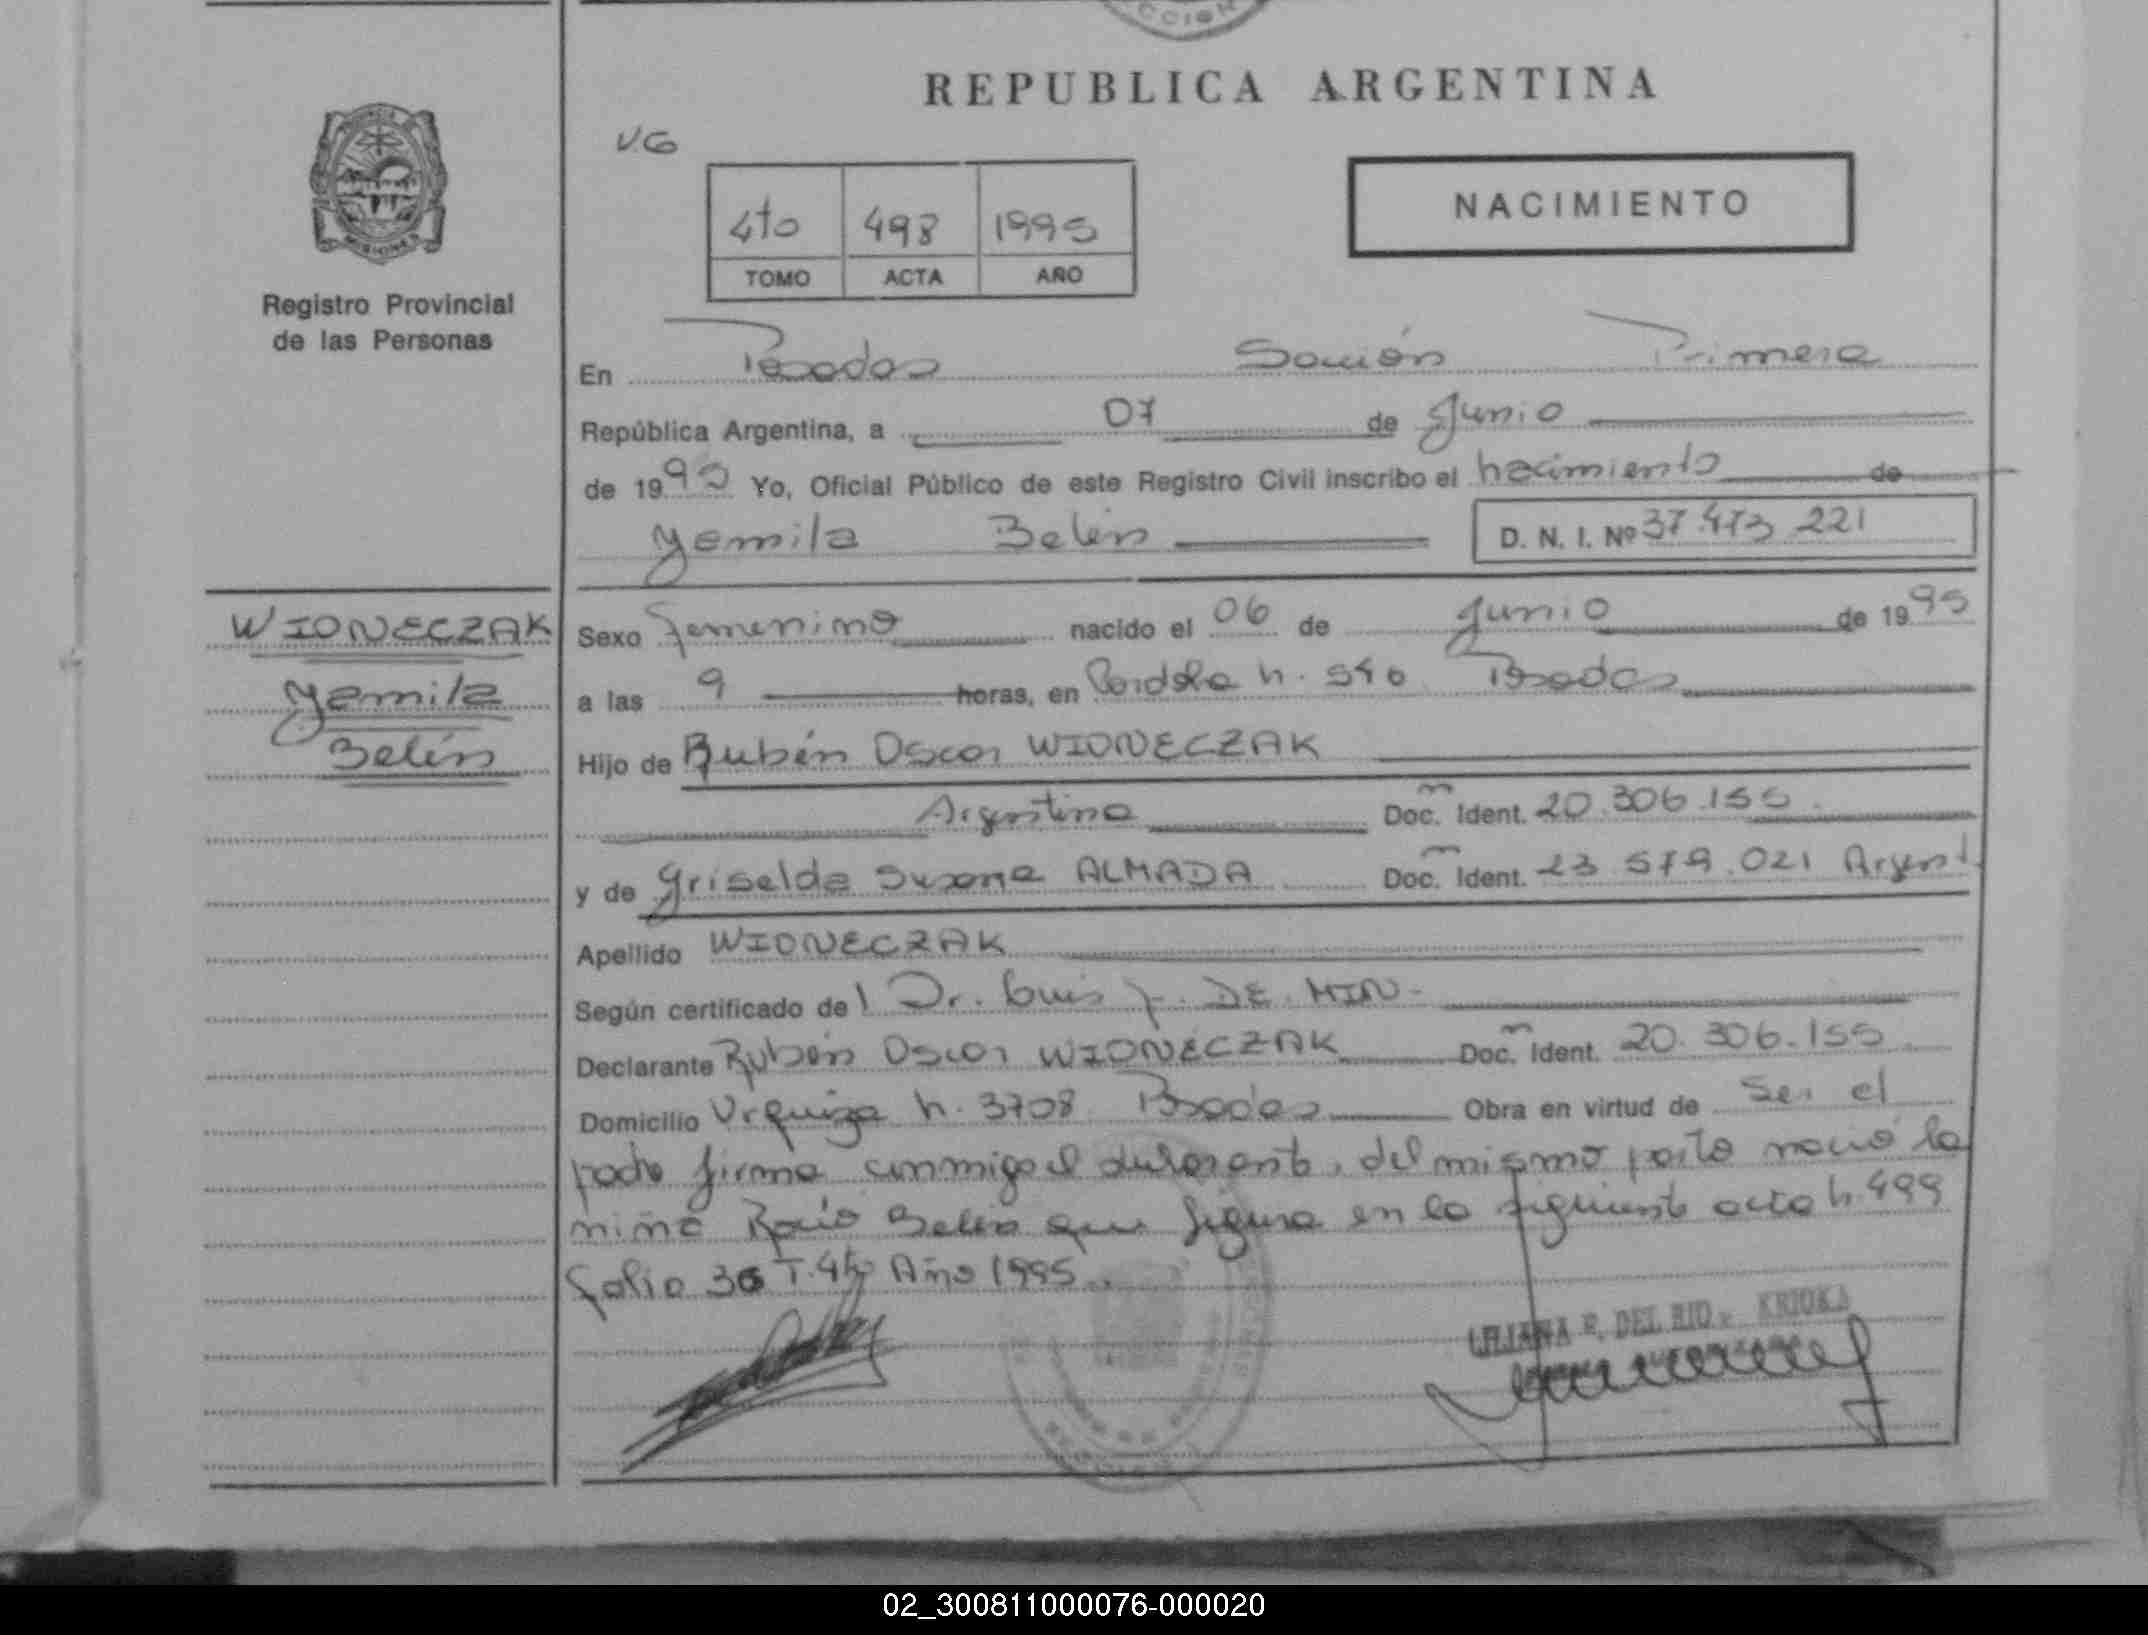 CCION
REPUBLICA ARGENTINA
VG
4to 498 1995
TOMO ACTA AÑO
NACIMIENTO
MISIONES
Registro Provincial
de las Personas
En Posadas Sección Primera
República Argentina, a 07 de Junio
de 1995 Yo, Oficial Público de este Registro Civil inscribo el nacimiento de
Yemila Belén D. N. I. Nº 37.473.221
WIONECZAK
Yemila
Belén
Sexo femenino nacido el 06 de Junio de 1995
a las 9 horas, en Córdoba n. 540 Posadas
Hijo de Rubén Oscar WIONECZAK
Argentino Doc. Ident. 20.306.155
y de Griselda Susana ALMADA Doc. Ident. 23 579.021 Argent.
Apellido WIONECZAK
Según certificado del Dr. Luis J. DE MIN-
Declarante Rubén Oscar WIONECZAK Doc. Ident. 20.306.155
Domicilio Urquiza n. 3708 Posadas Obra en virtud de Ser el
padre firma conmigo el declarante, del mismo parto nació la
niña Rocío Belén que figura en la siguiente acta n. 499
folio 36 T. 4to Año 1995.
LILIANA F. DEL RIO KRIOKA
02_300811000076-000020